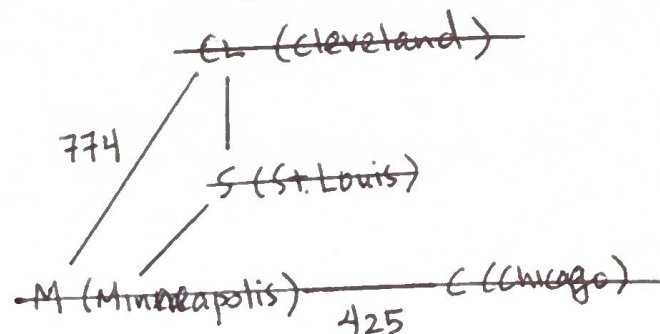 CL (Cleveland)
774
S (St. Louis)
M (Minneapolis) C (Chicago)
425